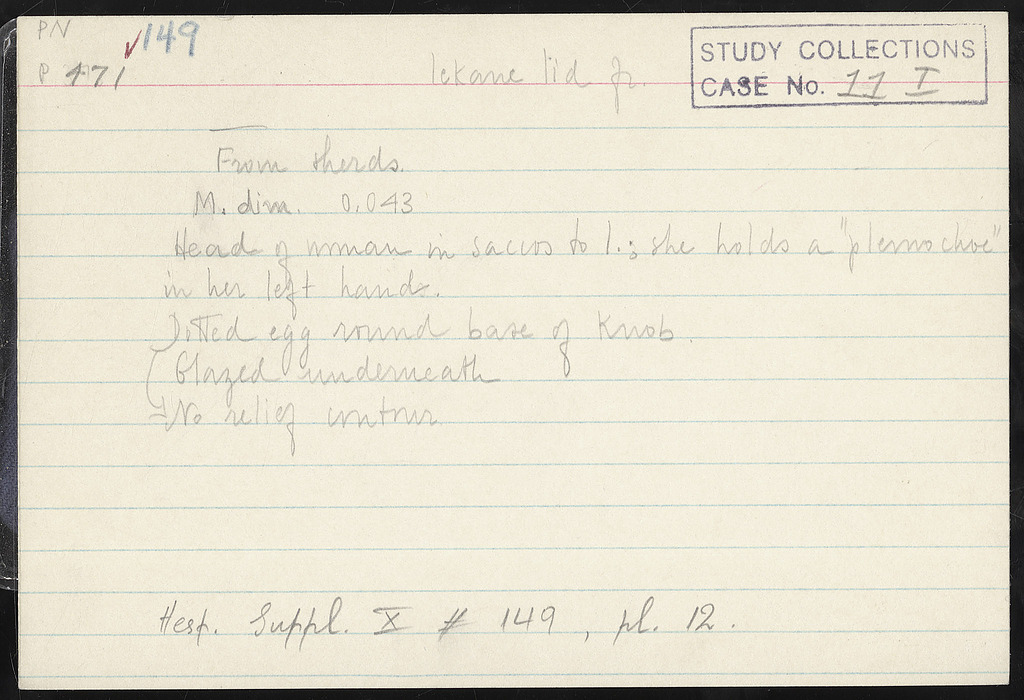 PN
✓149
P 471
lekane lid fr.
STUDY COLLECTIONS
CASE No. 11 I
From sherds.
M. dim. 0.043
Head of woman in saccos to l.; she holds a "plemochoe"
in her left hands.
Dotted egg round base of knob.
Glazed underneath
No relief contour
Hesp. Suppl. X # 149, pl. 12.